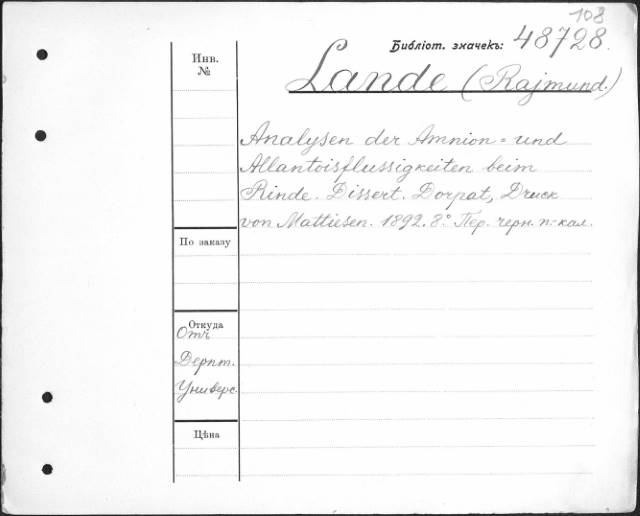 108
Библіот. значекъ: 48728.
Инв.
№
Lande (Rajmund.)
Analysen der Amnion= und
Allantoisflussigkeiten beim
Rinde. Dissert. Dorpat, Druck
von Mattiesen. 1892. 8.° Пер. черн. п.-кал.
По заказу
Откуда
Отъ
Дерпт.
Универс.
Цѣна